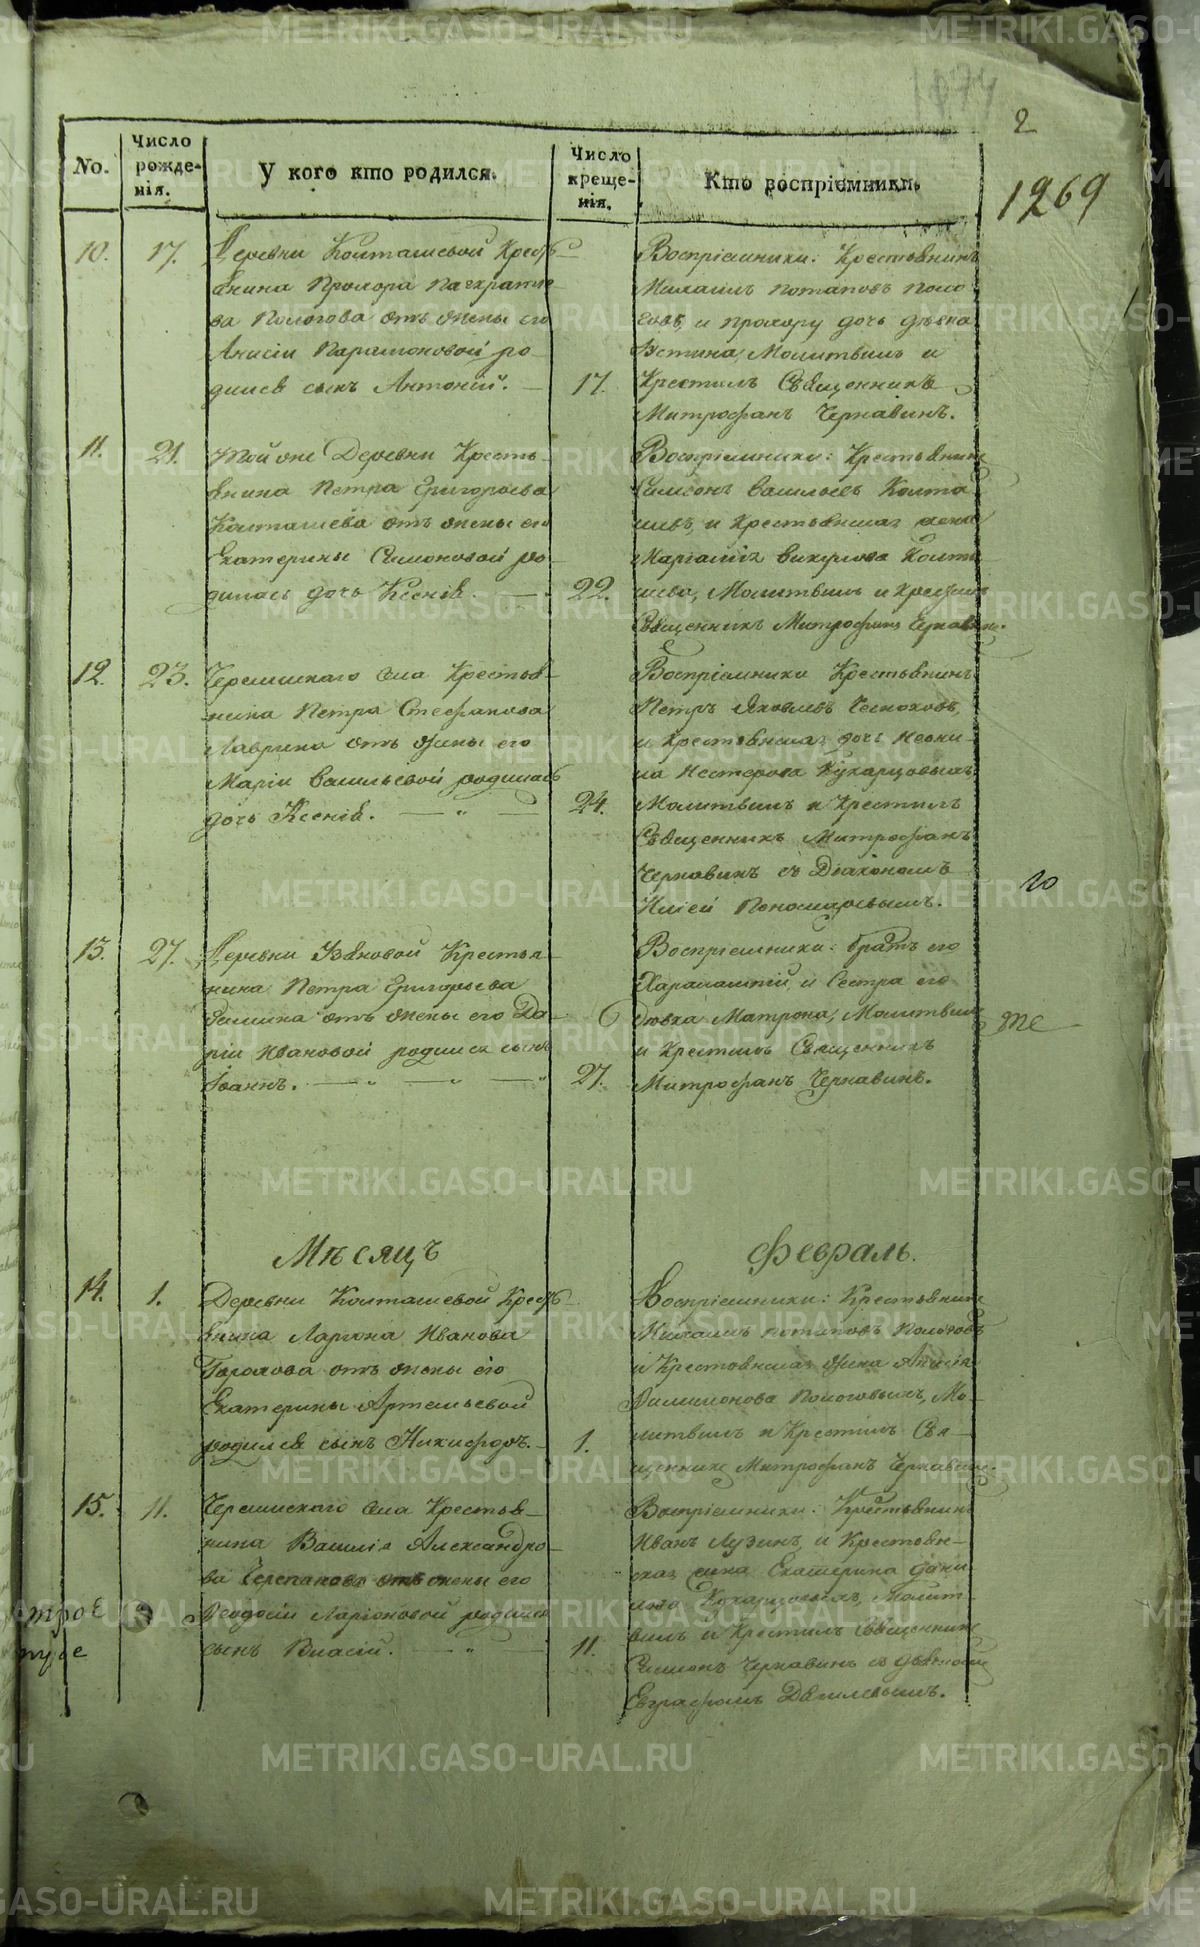 2
1269
No.
Число рожде-нія.
У кого кто родился.
Число креще-нія.
Кто воспріемники.
10.
17.
Деревни Колташевой Кресть
янина Прохора Панкратье
ва Пологова отъ жены его
Анисіи Парамоновой ро-
дился сынъ Антоній.
17.
Воспріемники: Крестьянинъ
Михаилъ Потаповъ Поло
говъ, и Прохору дочь дѣвка
Устина, Молитвилъ и
Крестилъ Священникъ
Митрофанъ Чернавинъ.
11.
21.
Той же Деревни Кресть-
янина Петра Григорьева
Колташева отъ жены его
Екатерины Симоновой ро-
дилась дочь Ксенія.
22.
Воспріемники: Крестьянинъ
Симеонъ Васильевъ Колта
шевъ, и Крестьянская жена
Викулова Колта
шева, Молитвилъ и Крестилъ
Священникъ Митрофанъ Чернавинъ.
12.
23.
Черемискаго села Крестья-
нина Петра Стефанова
Лаврина отъ жены его
Маріи Васильевой родилась
дочь Ксенія.
24.
Воспріемники Крестьянинъ
Петръ Яковлевъ Чесноковъ,
и Крестьянская дочь Неони-
ла Нестерова Кухарцовыхъ
Молитвилъ и Крестилъ
Священникъ Митрофанъ
Чернавинъ съ Діакономъ
Иліей Пономаревымъ.
го
13.
27.
Деревни Узяновой Крестья-
нина Петра Григорьева
отъ жены его Да-
ріи Ивановой родился сынъ
Іоаннъ.
27.
Воспріемники: братъ его
Харалампій, и Сестра его
дѣвка Матрона, Молитвилъ
и Крестилъ Священникъ
Митрофанъ Чернавинъ.
те
Мѣсяцъ Февраль.
14.
1.
Деревни Колташевой Кресть-
янина Ларіона Иванова
Горохова отъ жены его
Екатерины Артемьевой
родился сынъ Никифоръ.
1.
Воспріемники: Крестьянинъ
Михаилъ Потаповъ Пологовъ
и Крестьянская жена Анисія
Филимонова Пологовыхъ, Мо-
литвилъ и Крестилъ Свя-
щенникъ Митрофанъ Чернавинъ.
15.
11.
Черемискаго села Крестья-
нина Василія Александро-
ва Черепанова отъ жены его
Феодосіи Ларіоновой родился
сынъ Власій.
11.
Воспріемники: Крестьянинъ
Иванъ Лузинъ, и Крестьян-
ская жена Екатерина Дани
лова Кухарцовыхъ, Молит-
вилъ и Крестилъ Священникъ
Симеонъ Чернавинъ съ
Евграфомъ
трое
METRIKI.GASO-URAL.RU